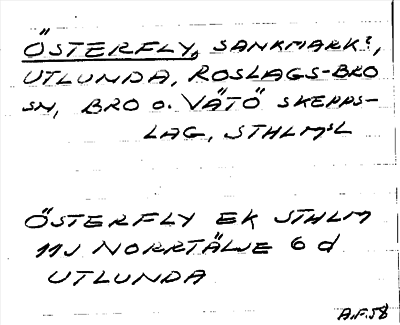 ÖSTERFLY, SANKMARK?,
UTLUNDA, ROSLAGS-BRO
SN, BRO O. VÄTÖ SKEPPS-
LAG, STHLMSL
ÖSTERFLY EK STHLM
11J NORRTÄLJE 6 d
UTLUNDA
A.F.58